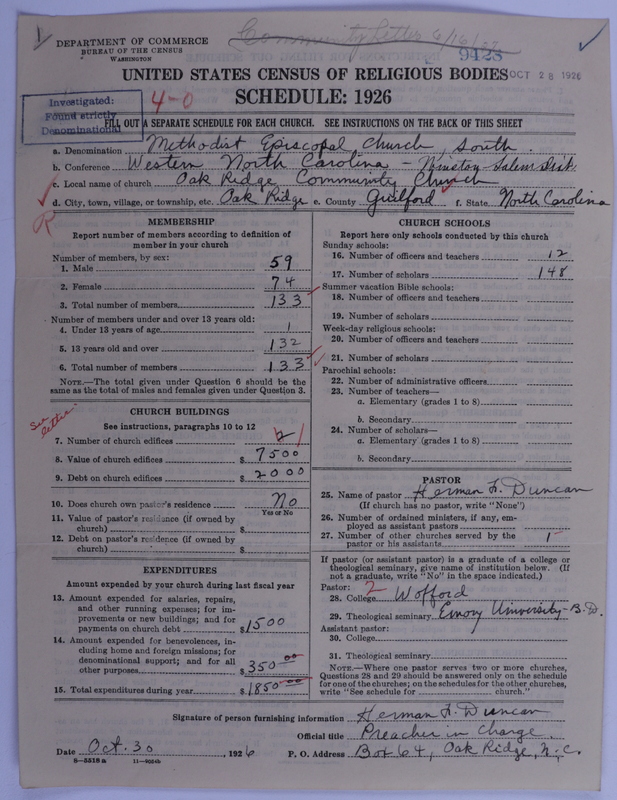 1
Community Letter 6/16/27
DEPARTMENT OF COMMERCE
BUREAU OF THE CENSUS
WASHINGTON
9428
UNITED STATES CENSUS OF RELIGIOUS BODIES
OCT 28 1926
SCHEDULE: 1926
Investigated:
Found strictly
Denominational
4-0
FILL OUT A SEPARATE SCHEDULE FOR EACH CHURCH. SEE INSTRUCTIONS ON THE BACK OF THIS SHEET
a. Denomination Methodist Episcopal Church, South.
b. Conference Western North Carolina - Winston-Salem Dist.
c. Local name of church Oak Ridge Community Church
d. City, town, village, or township, etc. Oak Ridge e. County Guilford f. State North Carolina
R
MEMBERSHIP
Report number of members according to definition of
member in your church
Number of members, by sex:
1. Male 59
2. Female 74
3. Total number of members 133
Number of members under and over 13 years old:
4. Under 13 years of age 1
5. 13 years old and over 132
6. Total number of members 133
NOTE.—The total given under Question 6 should be the
same as the total of males and females given under Question 3.
See
letter
CHURCH BUILDINGS
See instructions, paragraphs 10 to 12
7. Number of church edifices 2 1
8. Value of church edifices $ 7500
9. Debt on church edifices $ 2000
10. Does church own pastor's residence No
Yes or No
11. Value of pastor's residence (if owned by
church) $
12. Debt on pastor's residence (if owned by
church) $
EXPENDITURES
Amount expended by your church during last fiscal year
13. Amount expended for salaries, repairs,
and other running expenses; for im-
provements or new buildings; and for
payments on church debt $1500
14. Amount expended for benevolences, in-
cluding home and foreign missions; for
denominational support; and for all
other purposes $350 00
15. Total expenditures during year $1850 00
CHURCH SCHOOLS
Report here only schools conducted by this church
Sunday schools:
16. Number of officers and teachers 12
17. Number of scholars 148
Summer vacation Bible schools:
18. Number of officers and teachers
19. Number of scholars
Week-day religious schools:
20. Number of officers and teachers
21. Number of scholars
Parochial schools:
22. Number of administrative officers
23. Number of teachers—
a. Elementary (grades 1 to 8)
b. Secondary
24. Number of scholars—
a. Elementary (grades 1 to 8)
b. Secondary
PASTOR
25. Name of pastor Herman F. Duncan
(If church has no pastor, write "None")
26. Number of ordained ministers, if any, em-
ployed as assistant pastors
27. Number of other churches served by the
pastor or his assistants 1
If pastor (or assistant pastor) is a graduate of a college or
theological seminary, give name of institution below. (If
not a graduate, write "No" in the space indicated.)
Pastor: 2
28. College Wofford
29. Theological seminary Emory University-B.D.
Assistant pastor:
30. College
31. Theological seminary
NOTE.—Where one pastor serves two or more churches,
Questions 28 and 29 should be answered only on the schedule
for one of the churches; on the schedules for the other churches,
write "See schedule for church."
Signature of person furnishing information Herman F. Duncan
Official title Preacher in Charge.
Date Oct. 30, 1926 P. O. Address Box 64, Oak Ridge, N.C.
8-5518 a 11-9054b